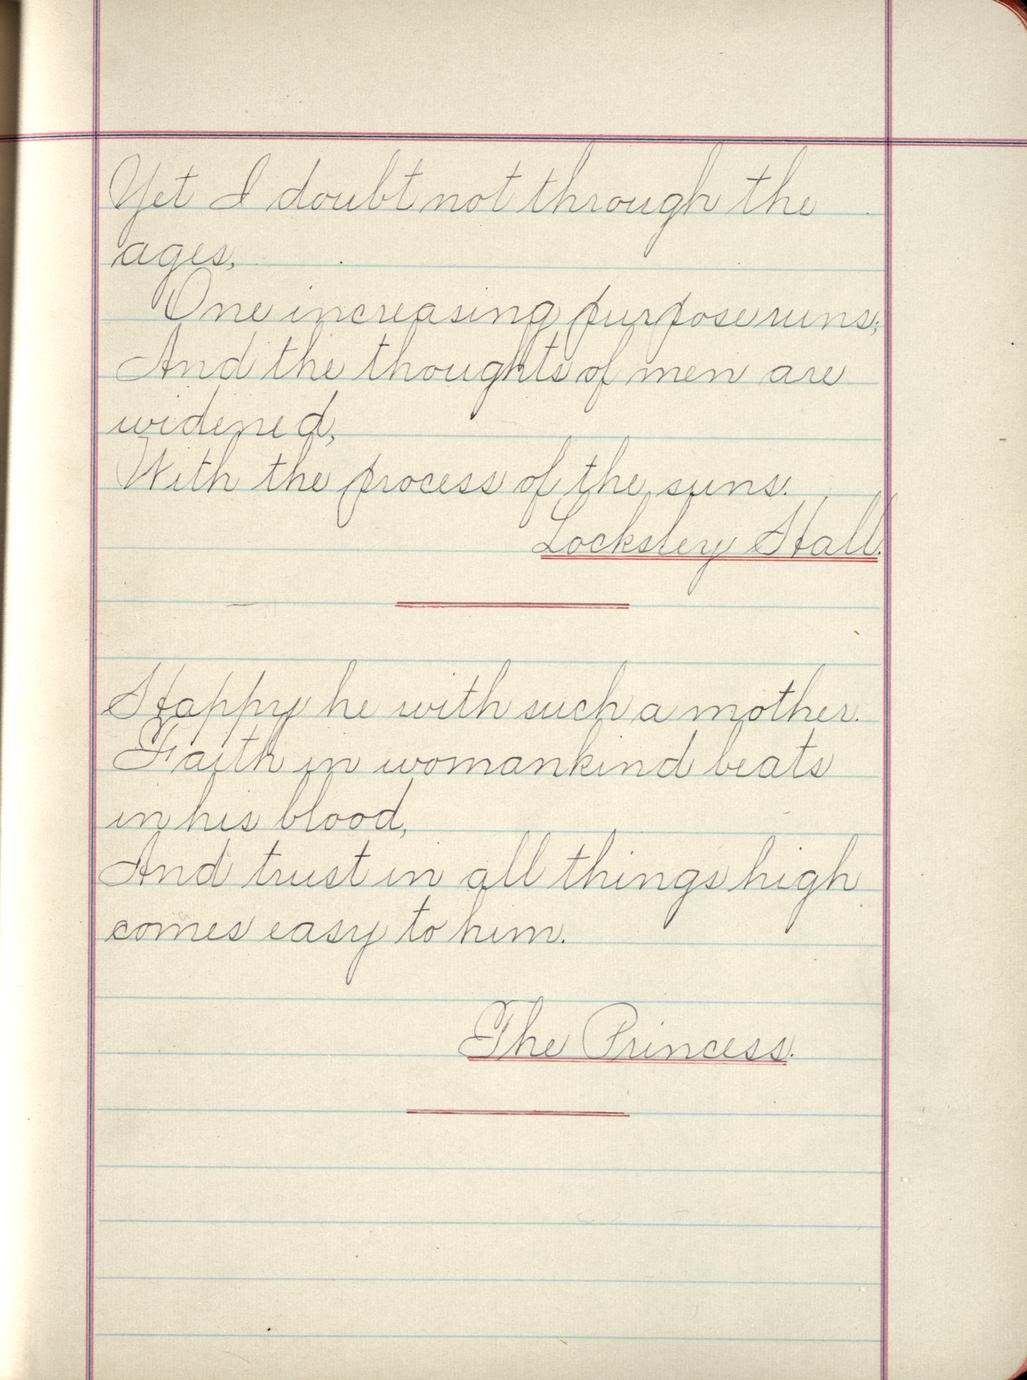 Yet I doubt not through the
ages,
One increasing purpose runs;
And the thoughts of men are
widened,
With the process of the suns.
Locksley Hall.
Happy he with such a mother.
Faith in womankind beats
in his blood,
And trust in all things high
comes easy to him.
The Princess.